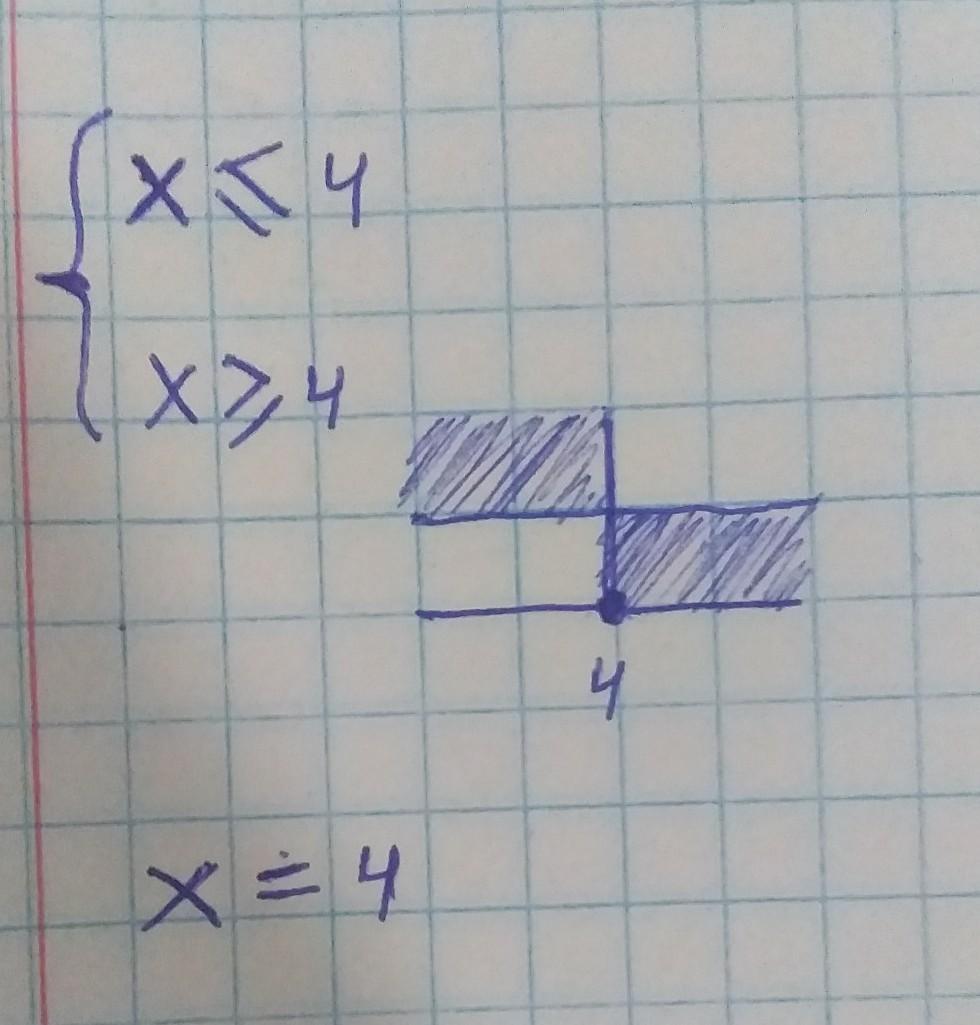 x ⩽ 4
x ⩾ 4
4
x = 4